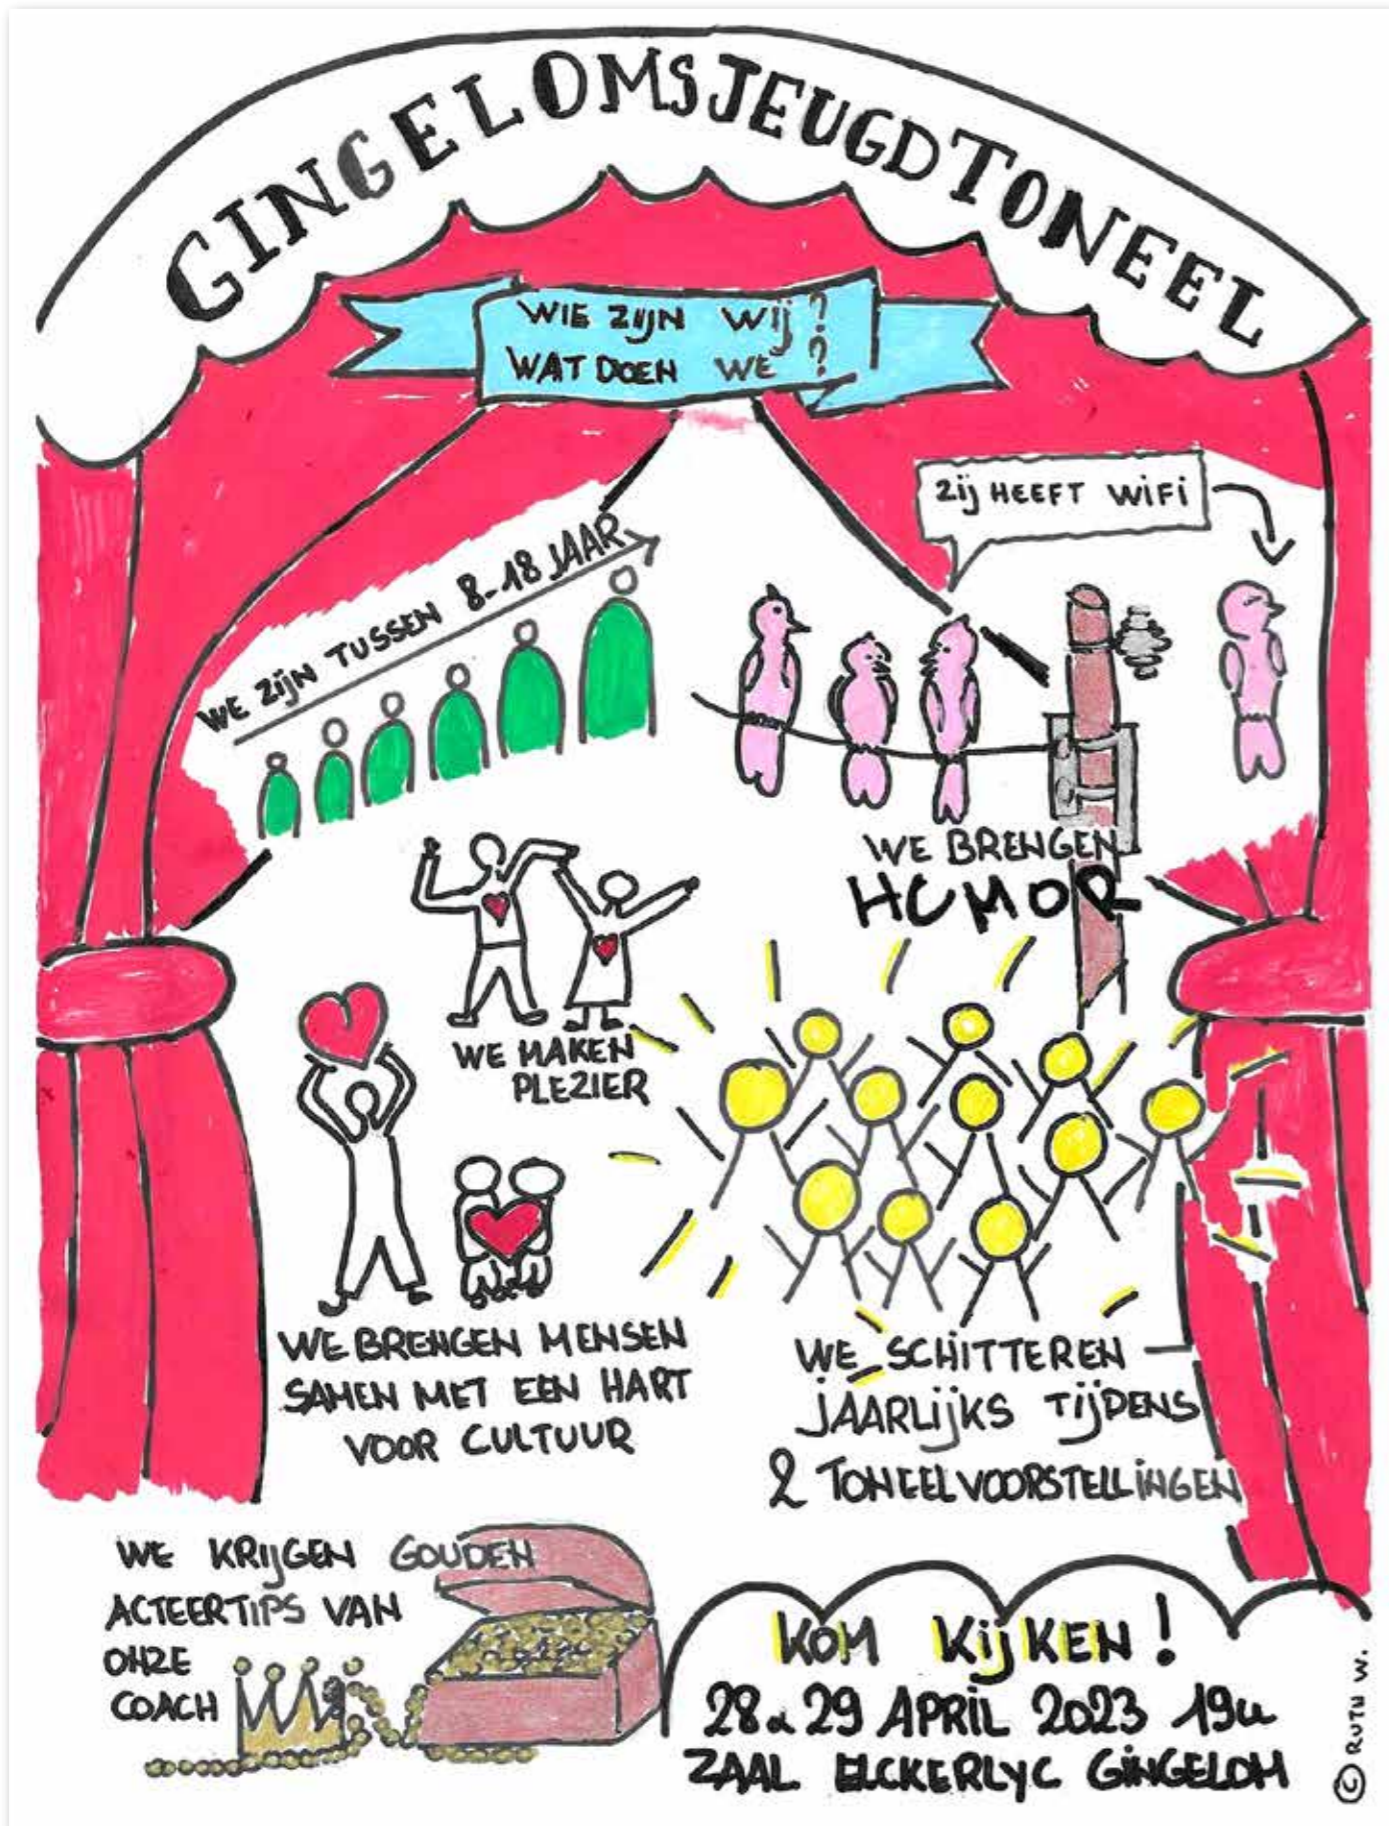 GINGELOMSJEUGDTONEEL
WIE ZIJN WIJ?
WAT DOEN WE?
ZIJ HEEFT WIFI
WE ZIJN TUSSEN 8-18 JAAR
WE BRENGEN
HUMOR
WE MAKEN
PLEZIER
WE BRENGEN MENSEN
SAMEN MET EEN HART
VOOR CULTUUR
WE SCHITTEREN
JAARLIJKS TIJDENS
2 TONEELVOORSTELLINGEN
WE KRIJGEN GOUDEN
ACTEERTIPS VAN
ONZE
COACH
KOM KIJKEN!
28 & 29 APRIL 2023 19u
ZAAL ELCKERLYC GINGELOM
© RUTH W.